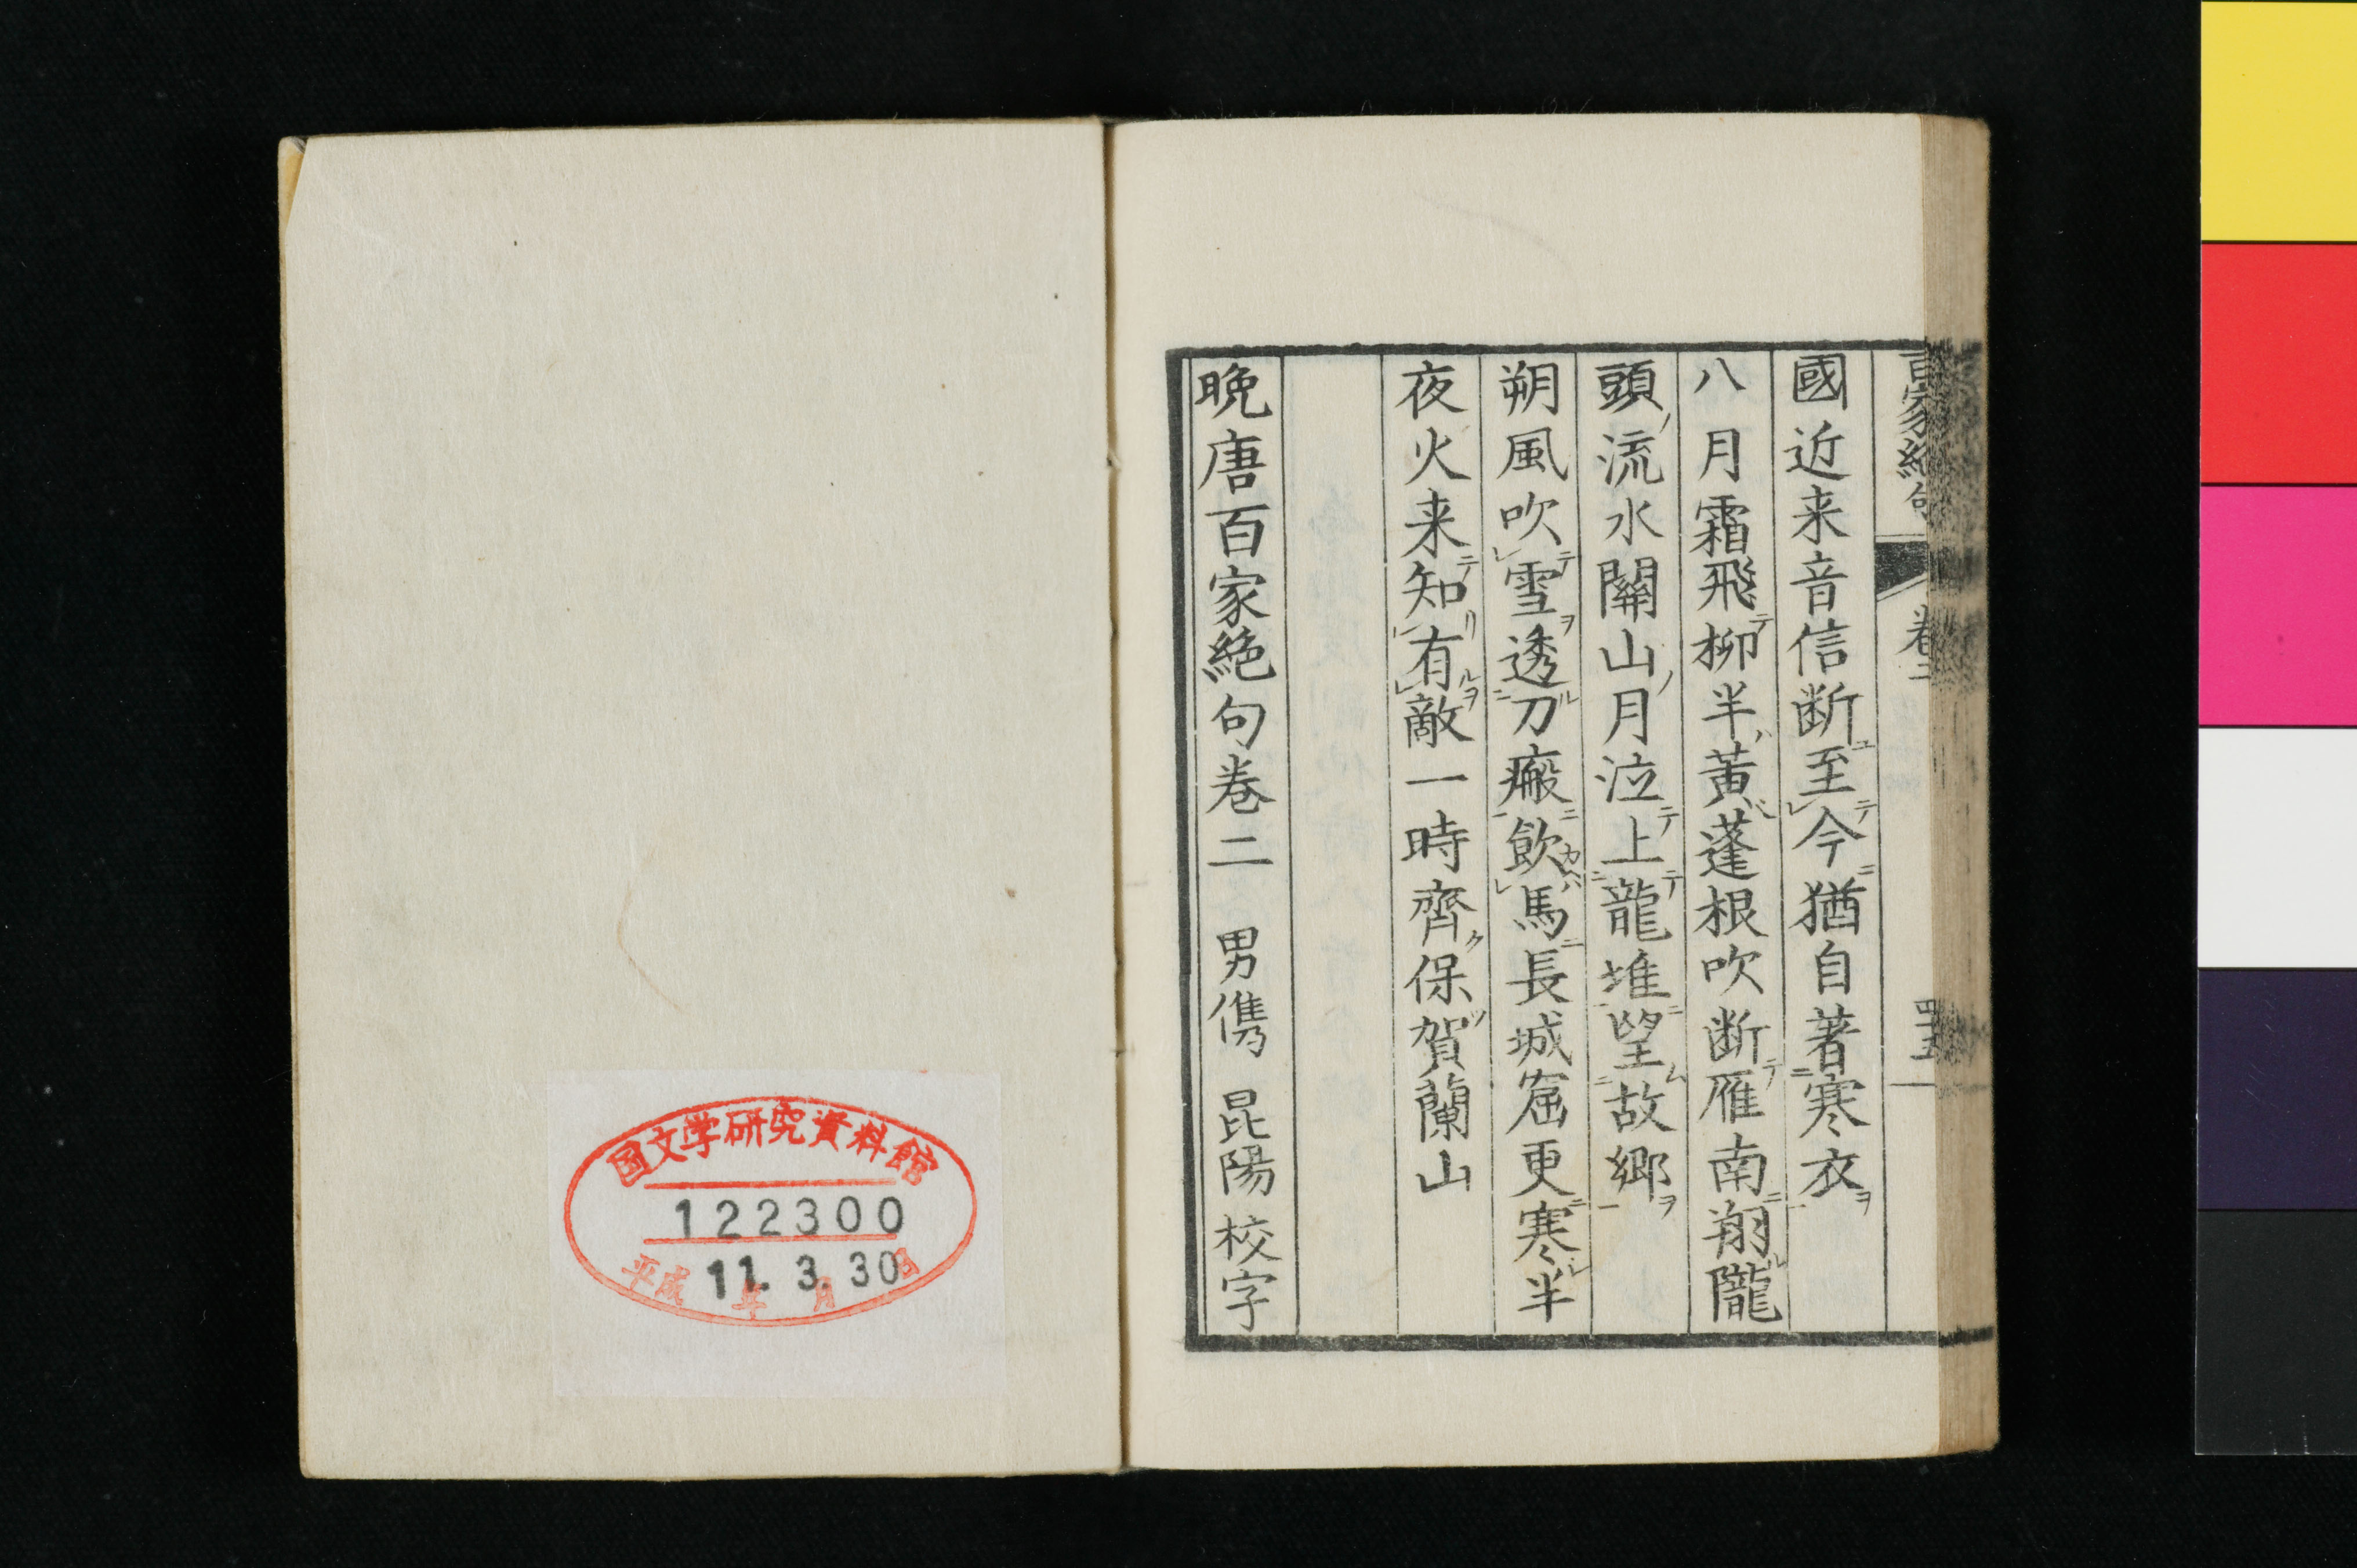 百家絶句 卷二 四十五
國近来音信断至今猶自著寒衣
八月霜飛柳半黃蓬根吹断雁南翔隴
頭流水關山月泣上龍堆望故鄉
朔風吹雪透刀瘢飲馬長城窟更寒半
夜火来知有敵一時齊保賀蘭山
晩唐百家絶句卷二 男儁 昆陽 校字
国文学研究資料館
122300
平成11年3月30日